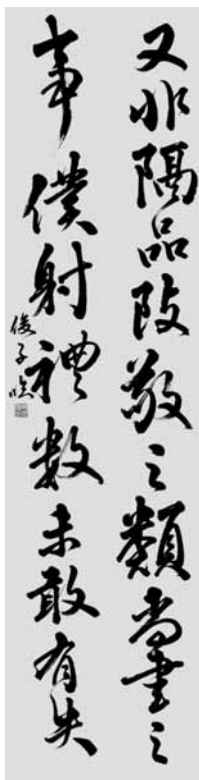 又非隔品致敬之類尚書之
事僕射禮數未敢有失
俊子臨